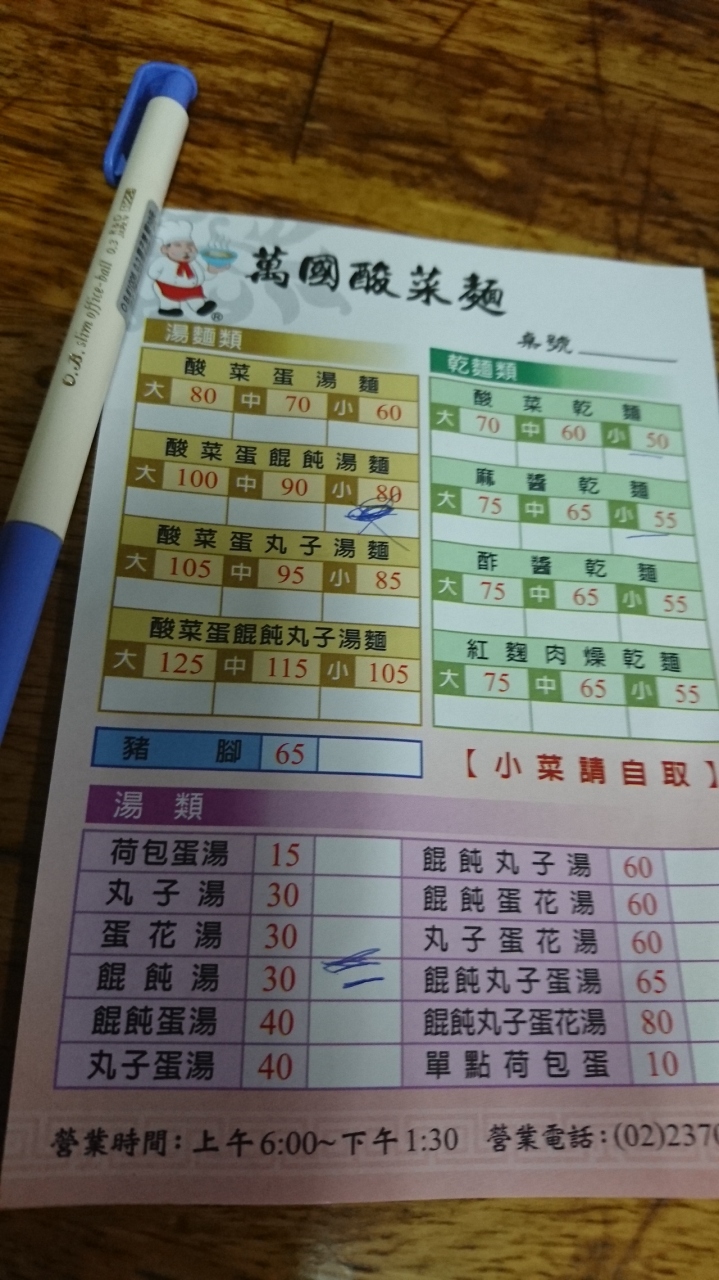 O.B. slim office-ball 0.3
萬國酸菜麵
®
桌號
湯麵類
酸菜蛋湯麵
大 80 中 70 小 60
酸菜蛋餛飩湯麵
大 100 中 90 小 80
酸菜蛋丸子湯麵
大 105 中 95 小 85
酸菜蛋餛飩丸子湯麵
大 125 中 115 小 105
乾麵類
酸菜乾麵
大 70 中 60 小 50
麻醬乾麵
大 75 中 65 小 55
酢醬乾麵
大 75 中 65 小 55
紅麴肉燥乾麵
大 75 中 65 小 55
豬腳 65
【小菜請自取】
湯類
荷包蛋湯 15
丸子湯 30
蛋花湯 30
餛飩湯 30
餛飩蛋湯 40
丸子蛋湯 40
餛飩丸子湯 60
餛飩蛋花湯 60
丸子蛋花湯 60
餛飩丸子蛋湯 65
餛飩丸子蛋花湯 80
單點荷包蛋 10
營業時間：上午6:00~下午1:30 營業電話：(02)2370